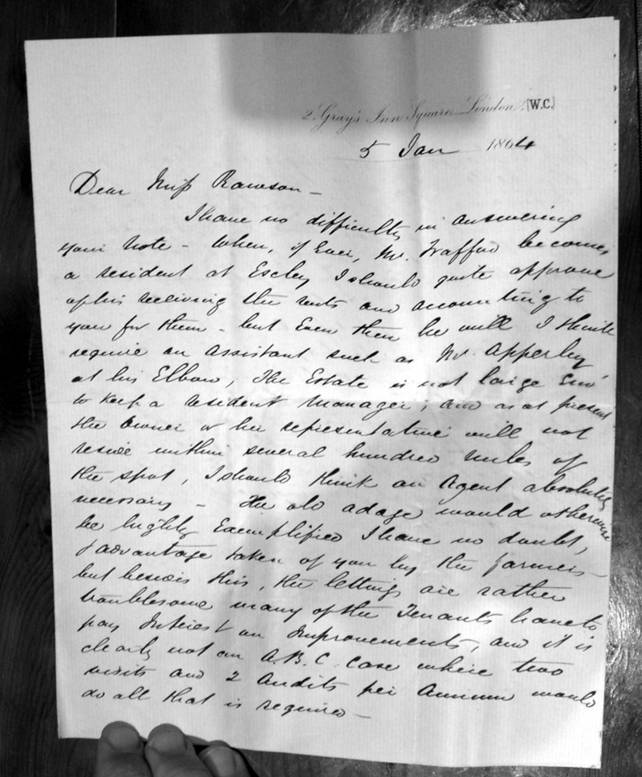 2 Gray's Inn Square London. (W.C.)
5 Jan 1864
Dear Miss Rawson -
I have no difficulty in answering
your Note - When, if Ever, Mr. Trafford becomes
a resident at Escley I should quite approve
of his receiving the rents and accounting to
you for them - but Even then he will I think
require an assistant such as Mr. Apperley
at his Elbow, The Estate is not large Eno'
to keep a resident manager; and as at present
the owner or her representative will not
reside within several hundred miles of
the spot, I should think an Agent absolutely
necessary - The old adage would otherwise
be highly Exemplified I have no doubt,
& advantage taken of you by the farmers -
but besides this, the lettings are rather
troublesome many of the Tenants have to
pay Interest on Improvements, and it is
clearly not an A.B.C. Case where two
visits and 2 Audits per Annum would
do all that is required -